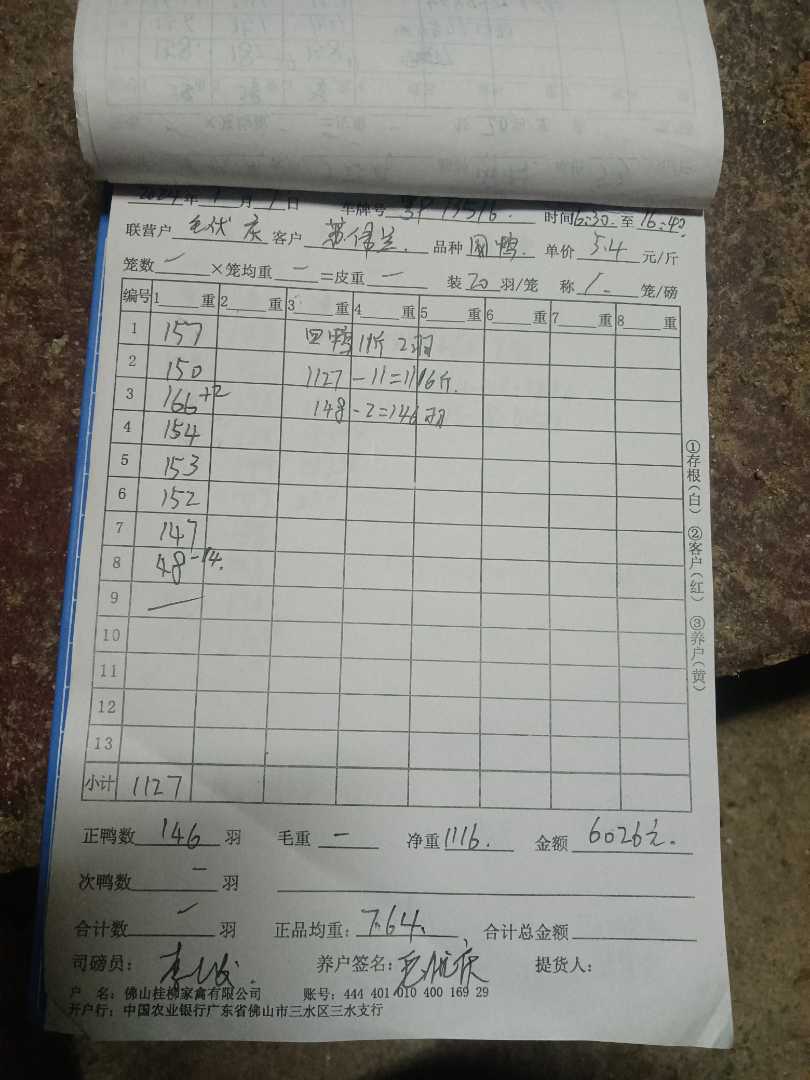 2024年1月1日 车牌号 粤P73516. 时间16:30至16:40
联营户 毛伏庆 客户 品种 国鸭. 单价 5.4 元/斤
笼数 一 ×笼均重 一 =皮重 一 装 20 羽/笼 称 1. 笼/磅
编号 1 重 2 重 3 重 4 重 5 重 6 重 7 重 8 重
1 157 回鸭 11斤 2羽
2 150 1127-11=1116斤.
3 166+2 148-2=146羽
4 154
5 153
6 152
7 147
8 48-14.
9 一
10
11
12
13
小计 1127
正鸭数 146 羽 毛重 一 净重 1116. 金额 6026元.
次鸭数 一 羽
合计数 一 羽 正品均重: 7.64. 合计总金额
司磅员: 养户签名: 提货人:
户 名: 佛山桂柳家禽有限公司 账号: 444 401 010 400 169 29
开户行: 中国农业银行广东省佛山市三水区三水支行
①存根(白) ②客户(红) ③养户(黄)